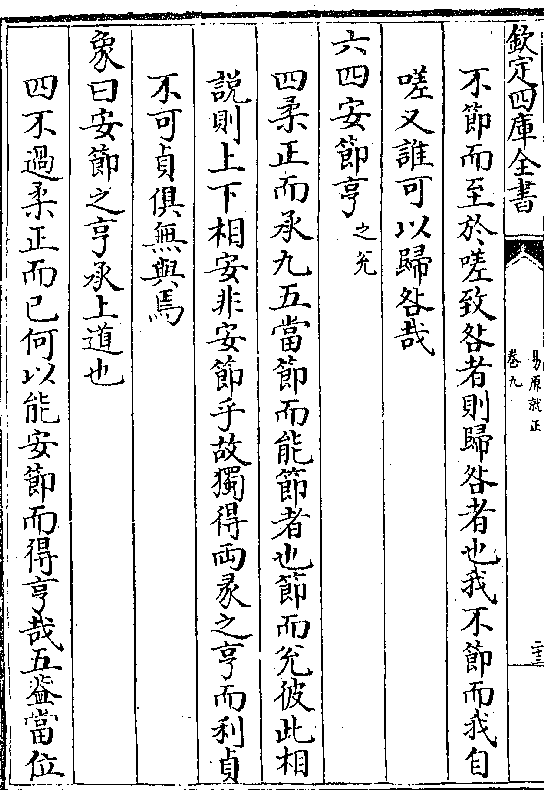 欽定四庫全書
易原就正
卷九
二十三
不節而至於嗟致咎者則歸咎者也我不節而我自
嗟又誰可以歸咎哉
六四安節亨之兊
四柔正而承九五當節而能節者也節而兊彼此相
說則上下相安非安節乎故獨得兩彖之亨而利貞
不可貞俱無與焉
象曰安節之亨承上道也
四不過柔正而已何以能安節而得亨哉五葢當位